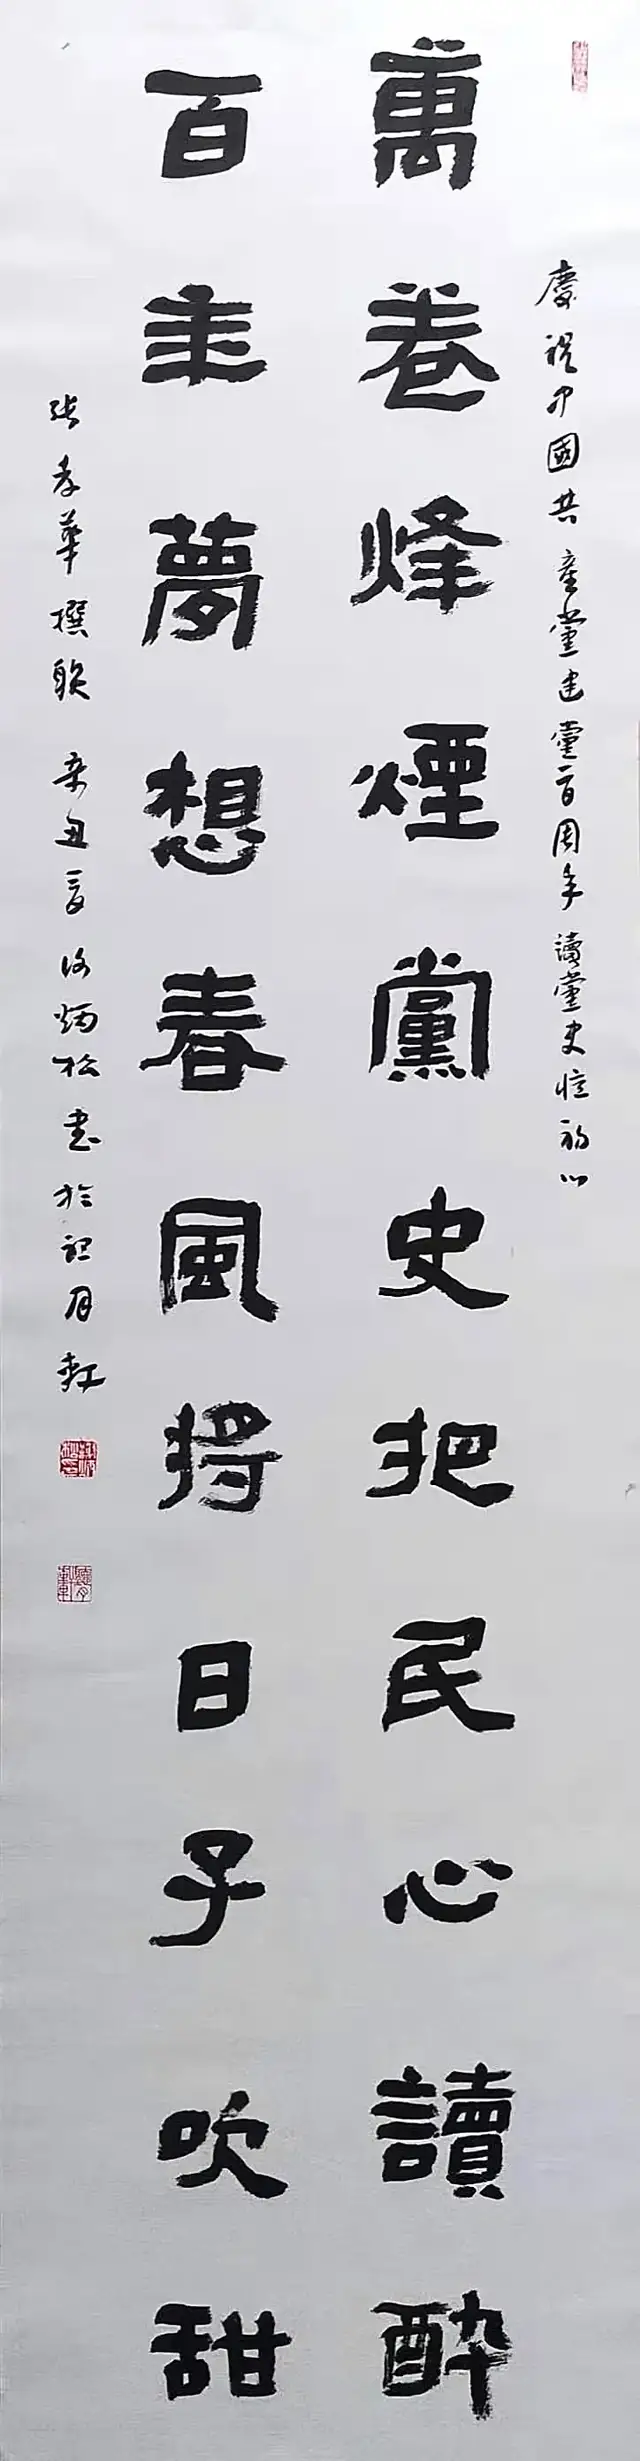 慶祝中國共産黨建黨百周年讀黨史憶初心
萬卷烽煙黨史把民心讀醉
百年夢想春風將日子吹甜
張孝華撰聯 辛丑夏 炳松書於 月軒